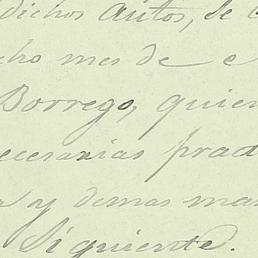 dichos autos, de
cho mes de e
Borrego, quien
ecesarias prad
y demas ma
Siguiente.